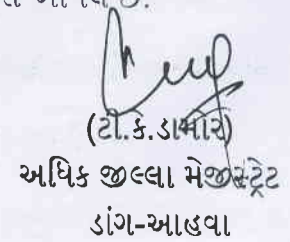 (ટી.કે.ડામોર)
અધિક જીલ્લા મેજીસ્ટ્રેટ
ડાંગ-આહવા